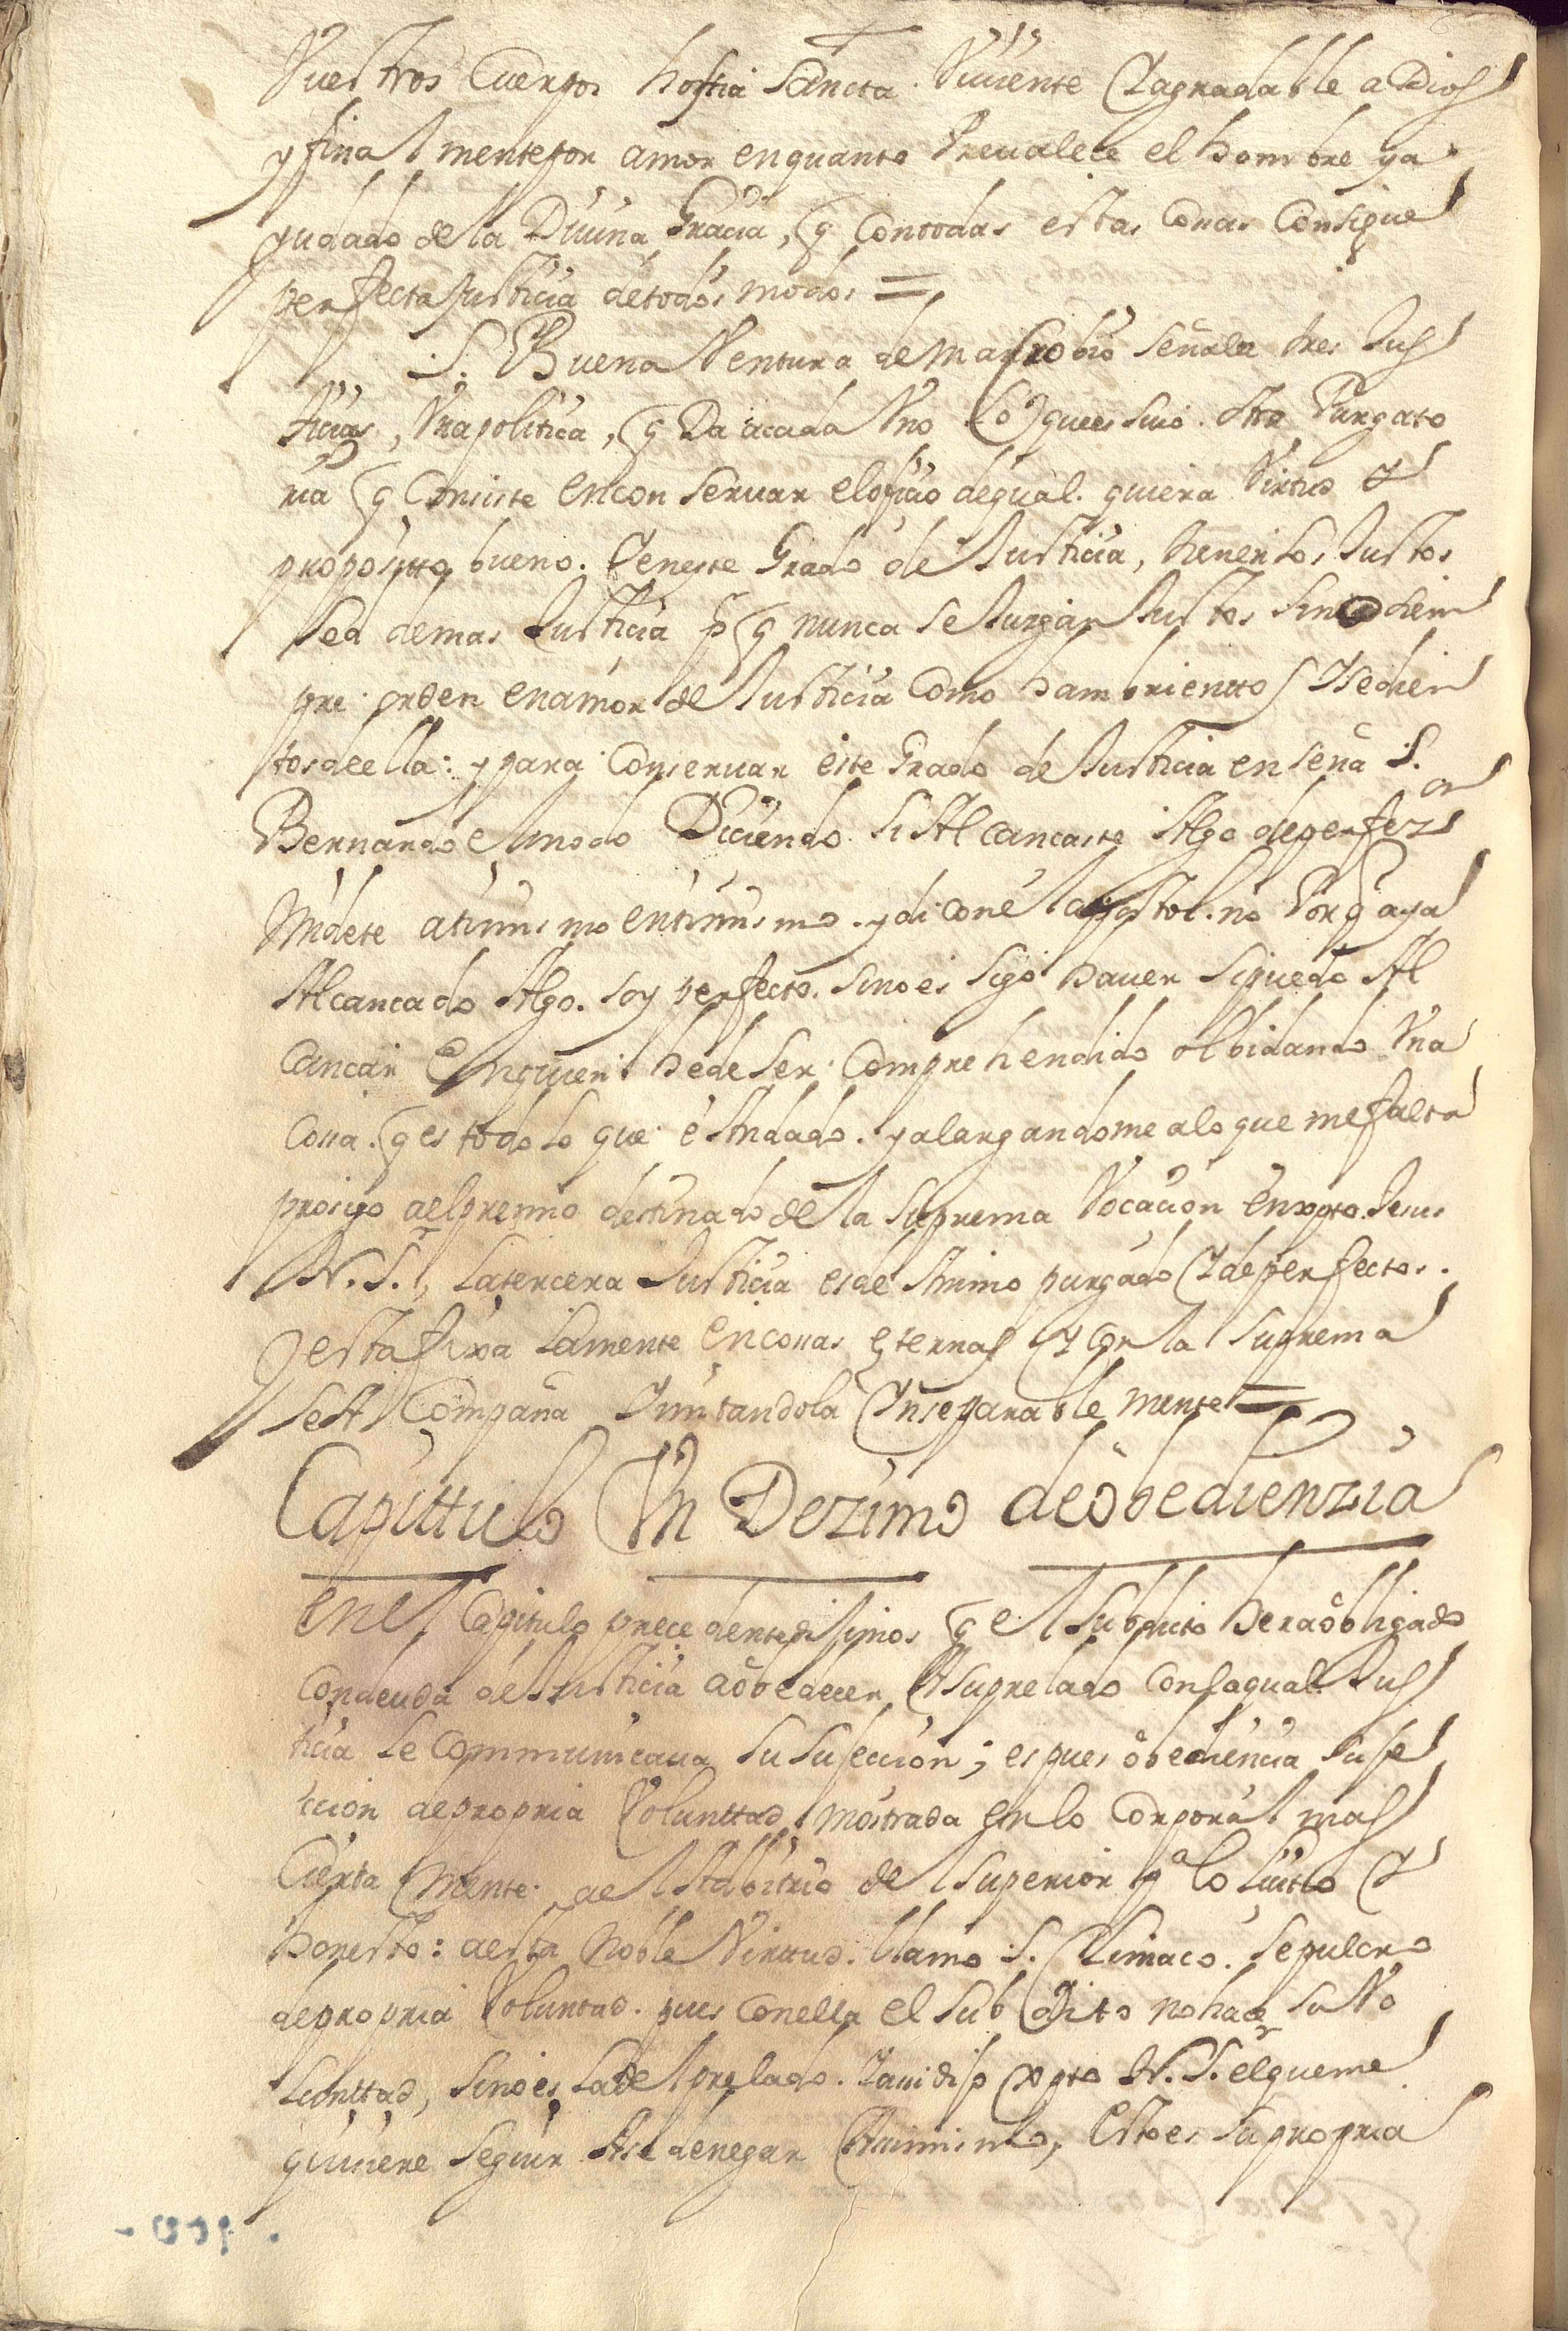 Vuestros Cuerpos hostia Sancta Viuiente Y agradable a Dios
y final mente por amor en quanto Preualece el hombre ya
yudado de la Diuina Gracia, q con todas estas Cosas Consigue
perfecta Justicia de todos modos =
S. Buena Ventura de Macrobio Señala tres Jus
ticias, Vna politica, q Da a cada Vno lo que es suio. Otra Purgato
ria q Consiste en con seruar el oficio de qual quiera Virtud Y
propositto bueno. Y en este Grado de Justicia, tienen los Justos
Sed de mas Justicia p q nunca se Juzgan Justos Sino siem
pre arden en amor de Justicia Como hambrienttos Y Sedien
tos de ella: y para Conseruar este Grado de Justicia enseña S.
Bernardo el modo Diciendo Si Alcancaste Algo de perfezon
Midete a ti mismo en ti mismo. y di con el apostol. no Porq aya
Alcancado Algo. soy perfecto. Sino es sigo hauer si puedo Al
cancar En quien he de Ser Comprehendido olbidando Vna
Cosa. q es todo lo que é Andado. y alargandome a lo que me falta
prosigo al premio destinado de la Suprema Vocacion en xpto Jesus
N. Sr. La tercera Justicia es de Animo purgado Y de perfectos.
q esta fixa la mente en cosas eternas Y con la Suprema
se A Compaña Juntandola Ynseparable mente =
Capittulo Vn Dezimo de obedienzia
en el Capitulo precedente dijimos q el Subdito hera obligado
con deuda de Justicia a obedecer A su prelado Con la qual Jus
ticia le Communicaua Su Sujeccion; es pues obediencia Suje
ccion de propria Voluntad mostrada en lo Corporal mas
Cierta Mente al Arbitrio del Superior pa lo licito Y
honesto: a esta Noble Virttud. llamo S. Climaco. Sepulcro
de propria Voluntad. pues Con ella el Sub Dito no hace Su Vo
lunttad, Sino es la del prelado. Y aui dijo Xpto N. S. el que me
quisiere Seguir A se de negar A si mismo, Esto es Su propria